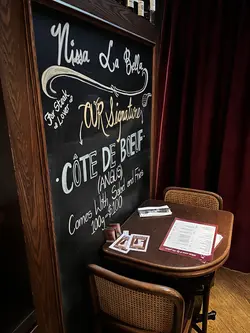 Nissa La Bella
For Steak
Lover
OUR Signature
CÔTE DE BOEUF
(ANGUS)
Comes With Salad and Fries
100g - $100